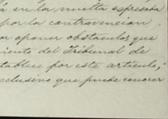 á en la multa espresion
por la contravencion
a oponer obstáculos que
iento del Tribunal de
tablece por este articulo,
esclusivo que puede conocer